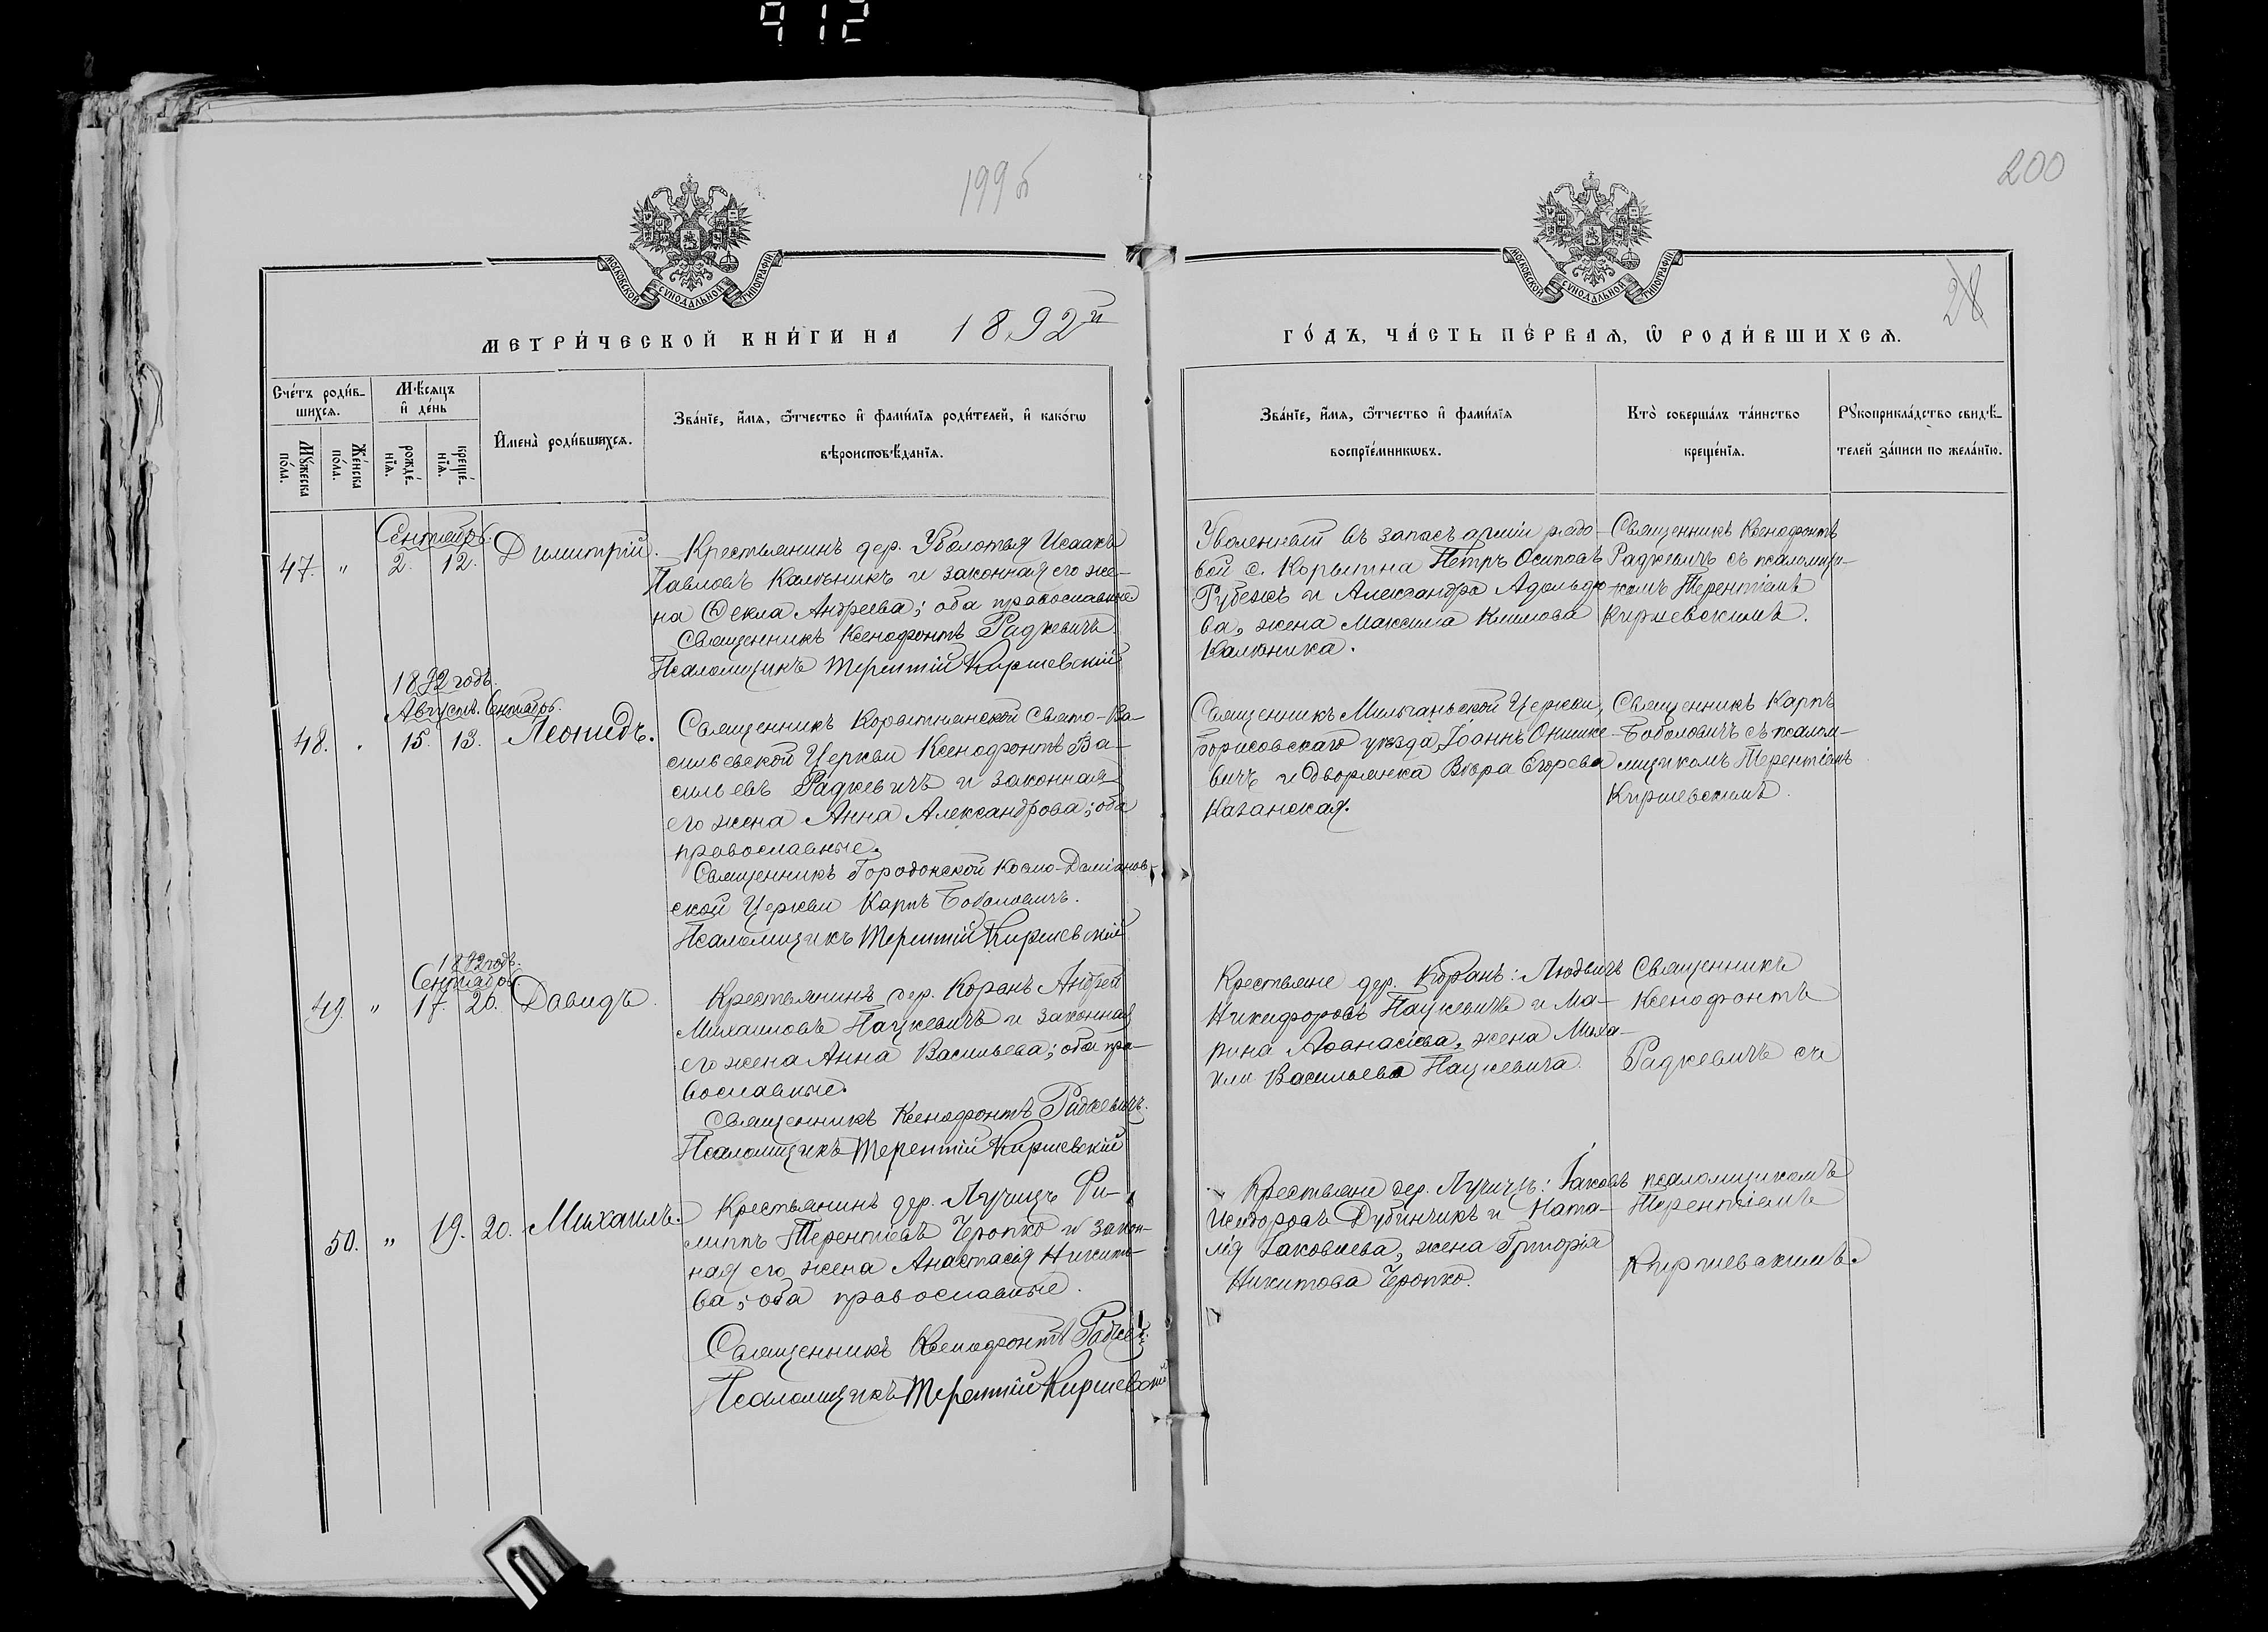 912
199 б
200
28
МОСКОВСКОЙ СУНОДАЛЬНОЙ ТИПОГРАФІИ
МОСКОВСКОЙ СУНОДАЛЬНОЙ ТИПОГРАФІИ
МЕТРИ́ЧЕСКОЙ КНИ́ГИ НА 1892й
ГО́ДЪ, ЧА́СТЬ ПЕ́РВАѦ, Ѡ РОДИ́ВШИХСѦ.
Сче́тъ роди́в-
шихсѧ.
Мꙋ́жеска по́ла.
Же́нска по́ла.
Мѣ́сѧцъ
и҆ де́нь
рожде́-
нїѧ.
креще́-
нїѧ.
И҆мена̀ роди́вшихсѧ.
Зва́нїе, и҆́мѧ, ѻ҆́тчество и҆ фами́лїѧ роди́телей, и҆ како́гѡ
вѣроисповѣ́данїѧ.
Зва́нїе, и҆́мѧ, ѻ҆́тчество и҆ фами́лїѧ
воспрїе́мникѡвъ.
Кто̀ соверша́лъ та́инство
креще́нїѧ.
Рꙋкоприкла́дство свидѣ́-
телей за́писи по жела́нїю.
Сентябрь.
47. " 2. 12. Димитрій.
Крестьянинъ дер. Уболотья Исаакъ
Павловъ Калюникъ и законная его же-
на Ѳекла Андреева; оба православные
Священникъ Ксенофонтъ Радкевичъ.
Псаломщикъ Терентій Киршевскій
Уволенный въ запасъ арміи рядо-
вой с. Корытна Петръ Осиповъ
Рубежъ и Александра Адольфо-
ва, жена Максима Климова
Калюника.
Священникъ Ксенофонтъ
Радкевичъ съ псаломщи-
комъ Терентіемъ
Киршевскимъ.
1892 годъ.
Августъ. Сентябрь.
48. " 15. 13. Леонидъ.
Священникъ Корытнянской Свято-Ва-
сильевской Церкви Ксенофонтъ Ва-
сильевъ Радкевичъ и законная
его жена Анна Александрова; оба
православные.
Священникъ Городокской Космо-Даміанов-
ской Церкви Карпъ Боболовичъ.
Псаломщикъ Терентій Киршевскій
Священникъ Мильчанской Церкви,
Борисовскаго уѣзда, Іоаннъ Онишке-
вичъ и дворянка Вѣра Егорова
Казанская.
Священникъ Карпъ
Боболовичъ съ псалом-
щикомъ Терентіемъ
Киршевскимъ.
1892 годъ.
Сентябрь.
49. " 17. 20. Давидъ.
Крестьянинъ дер. Коранъ Андрей
Михаиловъ Пацкевичъ и законная
его жена Анна Васильева; оба пра-
вославные.
Священникъ Ксенофонтъ Радкевичъ.
Псаломщикъ Терентій Киршевскій
Крестьяне дер. Коранъ: Людвигъ
Никифоровъ Пацкевичъ и Ма-
рина Аѳанасіева, жена Миха-
ила Васильева Пацкевича.
Священникъ
Ксенофонтъ
Радкевичъ съ
50. " 19. 20. Михаилъ.
Крестьянинъ дер. Лучицъ Фи-
липпъ Терентіевъ Черопко и закон-
ная его жена Анастасія Никити-
ва; оба православные.
Священникъ Ксенофонтъ Радкевичъ.
Псаломщикъ Терентій Киршевскій
Крестьяне дер. Лучицъ: Іаковъ
Исидоровъ Дубинчикъ и Ната-
лія Іаковлева, жена Григорія
Никитова Черопко.
псаломщикомъ
Терентіемъ
Киршевскимъ.